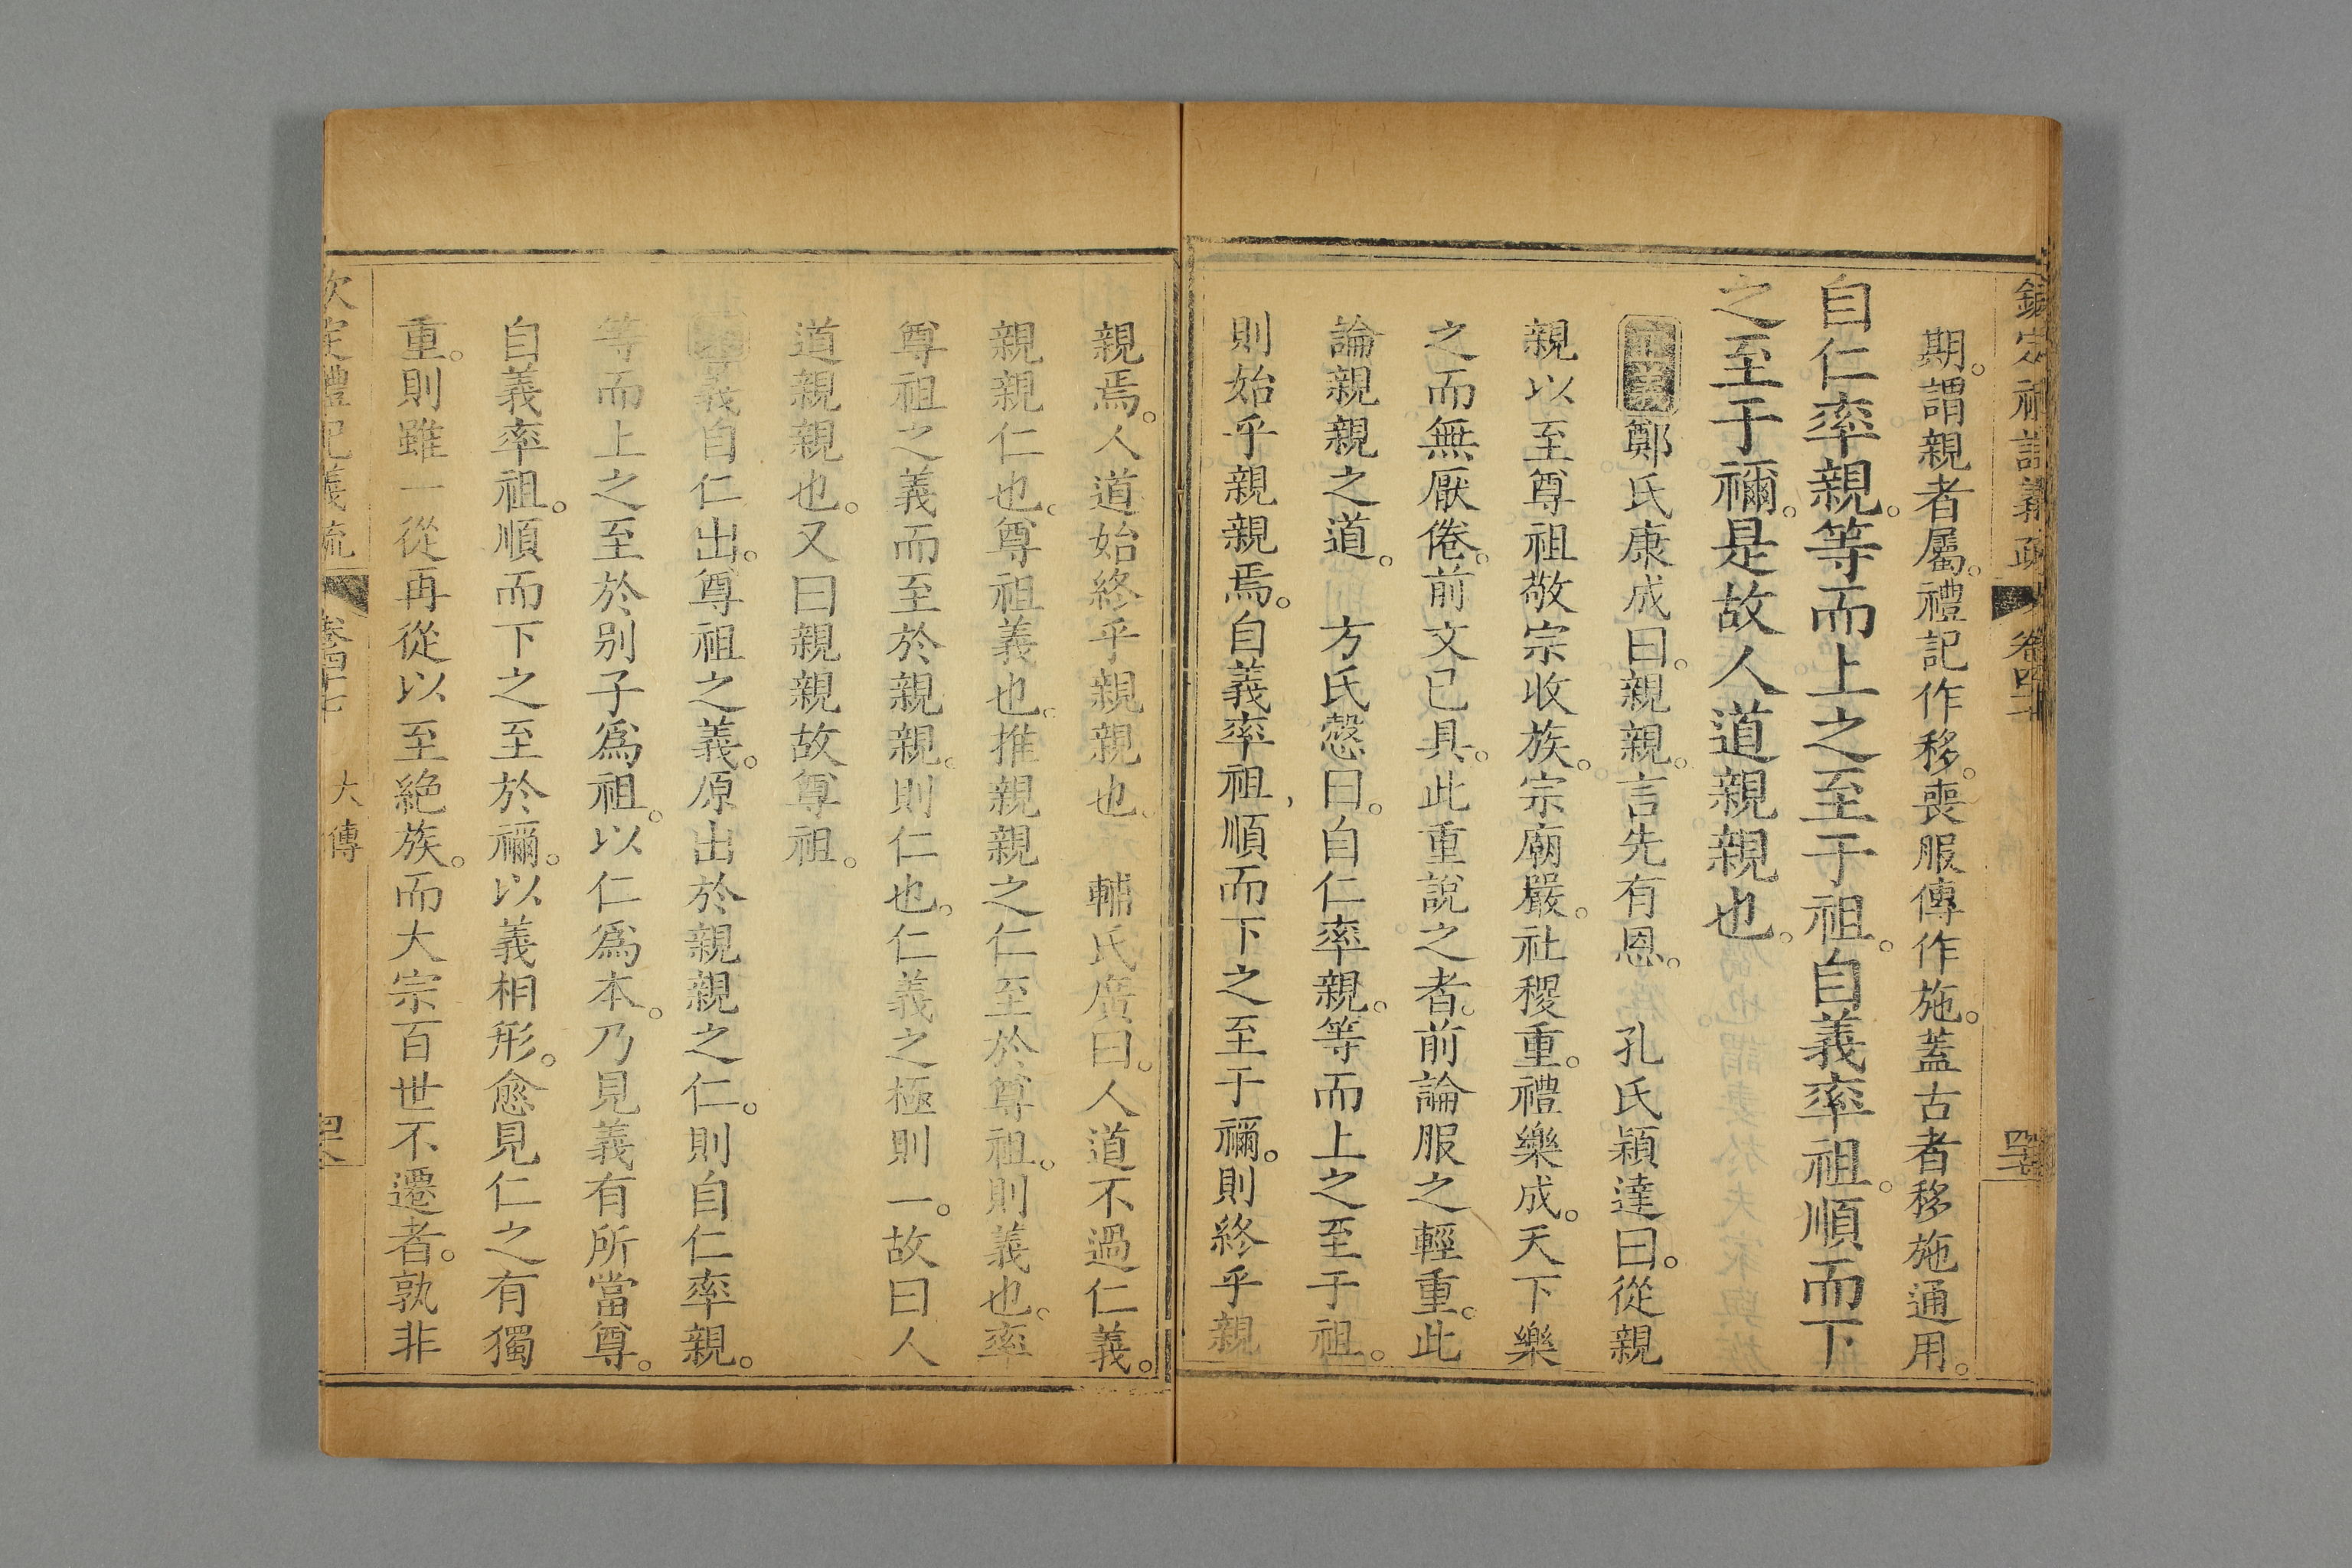 欽定禮記義疏 卷四十七
期。謂親者屬。禮記作移。喪服傳作施。蓋古者移施通用。
自仁率親。等而上之至于祖。自義率祖。順而下
之至于禰。是故人道親親也。
正義鄭氏康成曰。親親。言先有恩。 孔氏穎達曰。從親
親以至尊祖敬宗收族。宗廟嚴。社稷重。禮樂成。天下樂
之而無厭倦。前文已具。此重說之者。前論服之輕重。此
論親親之道。 方氏慤曰。自仁率親。等而上之至于祖。
則始乎親親焉。自義率祖，順而下之至于禰。則終乎親
親焉。人道始終乎親親也。 輔氏廣曰。人道不過仁義。
親親仁也。尊祖義也。推親親之仁至於尊祖。則義也。率
尊祖之義而至於親親。則仁也。仁義之極則一。故曰人
道親親也。又曰親親故尊祖。
義自仁出。尊祖之義。原出於親親之仁。則自仁率親。
等而上之至於別子爲祖。以仁爲本。乃見義有所當尊。
自義率祖。順而下之至於禰。以義相形。愈見仁之有獨
重。則雖一從再從以至絕族。而大宗百世不遷者。孰非
欽定禮記義疏 卷四十七 大傳